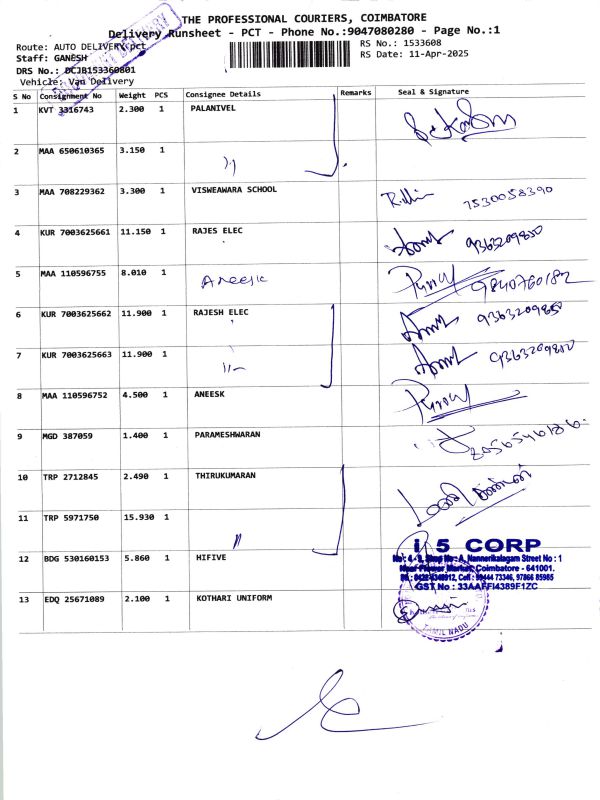 THE PROFESSIONAL COURIERS, COIMBATORE
Delivery Runsheet - PCT - Phone No.:9047080280 - Page No.:1
Route: AUTO DELIVERY-pct
RS No.: 1533608
Staff: GANESH
RS Date: 11-Apr-2025
DRS No.: DCJB153360801
Vehicle: Van Delivery
S No Consignment No Weight PCS Consignee Details Remarks Seal & Signature
1 KVT 3316743 2.300 1 PALANIVEL
2 MAA 650610365 3.150 1
3 MAA 708229362 3.300 1 VISWEAWARA SCHOOL 7530058390
4 KUR 7003625661 11.150 1 RAJES ELEC 9363209850
5 MAA 110596755 8.010 1 Aneesk 9840760182
6 KUR 7003625662 11.900 1 RAJESH ELEC 9363209850
7 KUR 7003625663 11.900 1 9363209850
8 MAA 110596752 4.500 1 ANEESK
9 MGD 387059 1.400 1 PARAMESHWARAN
10 TRP 2712845 2.490 1 THIRUKUMARAN
11 TRP 5971750 15.930 1
i 5 CORP
12 BDG 530160153 5.860 1 HIFIVE
A, Nannerikalagam Street No : 1
Near Flower Market, Coimbatore - 641001.
Cell : 99444 73346, 97866 85985
GST No : 33AAFFI4389F1ZC
13 EDQ 25671089 2.100 1 KOTHARI UNIFORM
TAMIL NADU